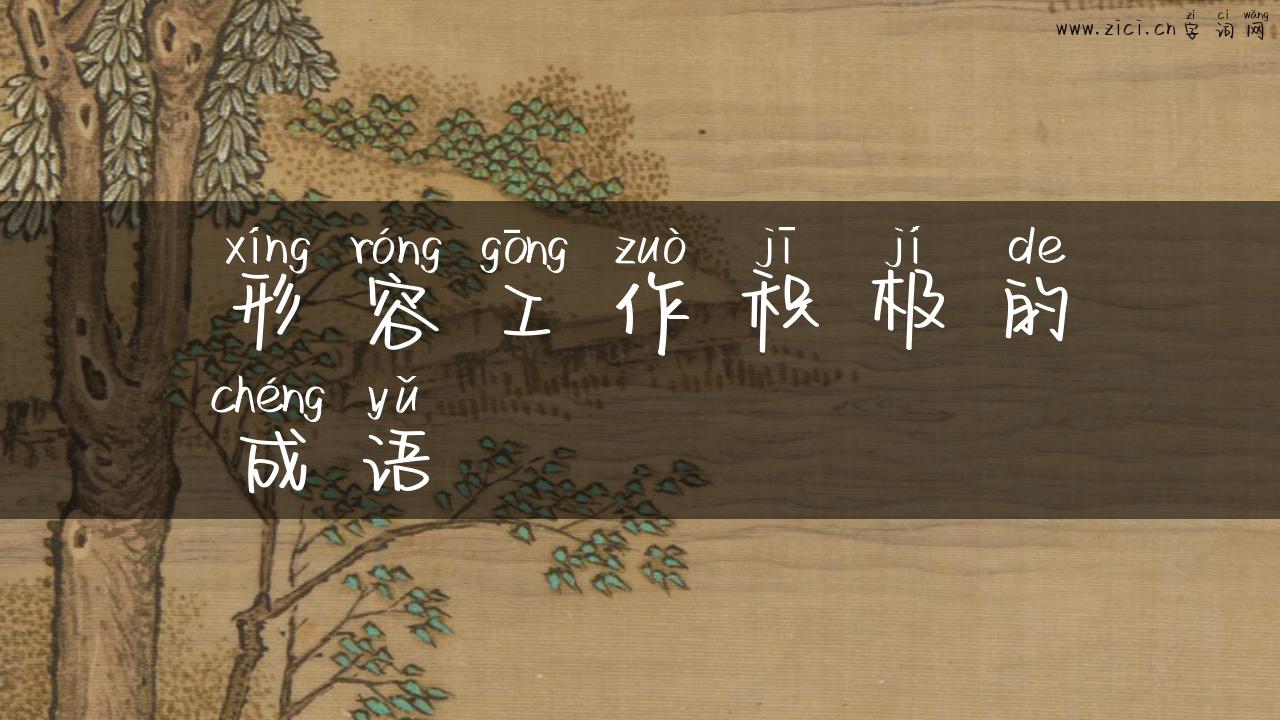 zì cí wǎng
www.zici.cn 字词网
xíng róng gōng zuò jī jí de
形容工作积极的
chéng yǔ
成语